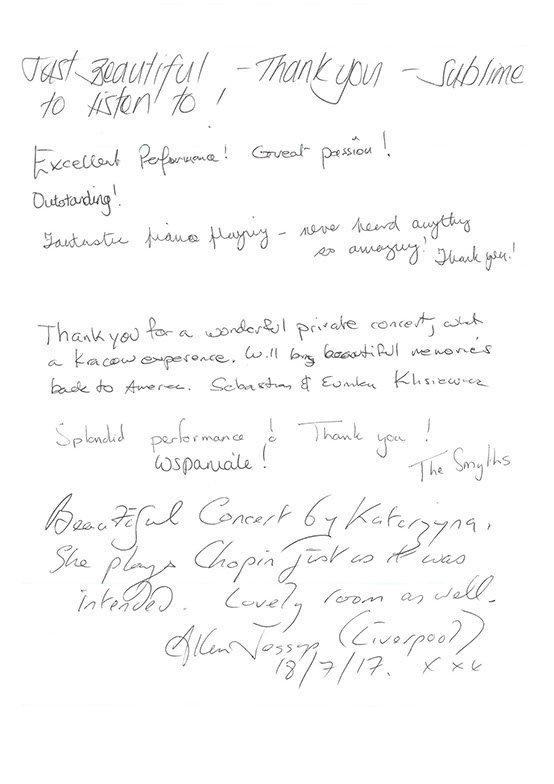 Just Beautiful - Thank you - Sublime
to listen to!
Excellent Performance! Great passion!
Outstanding!
Fantastic piano playing - never heard anything
so amazing! Thank you!
Thank you for a wonderful private concert, what
a Kracow experence. Will bring beautiful memories
back to America. Sebastian &
Splendid performance! Thank you!
Wspaniale!
The Smyths
Beautiful Concert by Katarzyna.
She plays Chopin just as it was
intended. Lovely room as well.
Jossop (Liverpool)
18/7/17. x x x